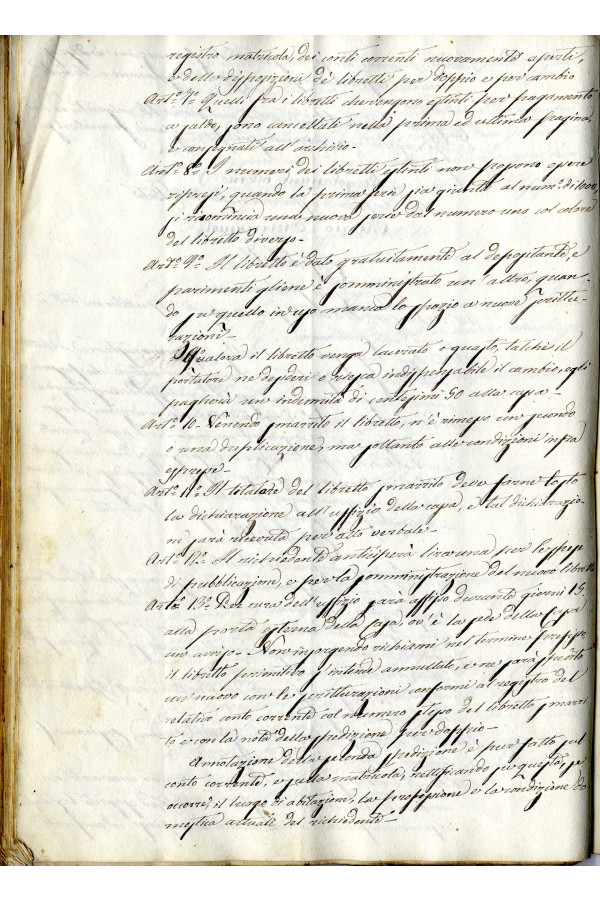 registro matricola, dei conti correnti nuovamente aperti,
e della disposizione de' libretti per doppio e per cambio
Art.° 7.° Quelli fra i libretti che vengono estinti per pagamento
a saldo, sono cancellati nella prima ed ultima pagina,
e consegnati all'archivio.
Art.° 8.° I numeri dei libretti estinti non possono essere
ripresi, quando la prima serie sia giunta al num.° di 1000,
si ricomincia una nuova serie dal numero uno col colore
del libretto diverso.
Art.° 9.° Il libretto è dato gratuitamente al depositante, e
parimenti gliene è somministrato un altro, quan-
do in quello in uso manca lo spazio a nuove scrittu-
razioni.
Qualora il libretto venga lacerato o guasto, talchè il
portatore ne desideri o renda indispensabile il cambio, egli
pagherà un indennità di centesimi 50 alla cassa.
Art.° 10. Venendo smarrito il libretto, n'è rimesso un secondo
o una duplicazione, ma soltanto alle condizioni infra
espresse.
Art.° 11.° Il titolare del libretto smarrito deve farne tosto
la dichiarazione all'uffizio della cassa, e tal dichiarazio-
ne sarà ricevuta per atto verbale.
Art.° 12.° Il richiedente anticiperà lira una per le spese
di pubblicazione, e per la somministrazione del nuovo libretto
Art.° 13.° Per cura dell'uffizio sarà affisso durante giorni 15,
alla porta esterna della casa, ov'è la sede della Cassa
un avviso. Non insorgendo richiami nel termine prefisso,
il libretto primitivo s'intende annullato, e ne sarà spedito
un nuovo con le scritturazioni conformi al registro del
relativo conto corrente col numero stesso del libretto smarri-
to e con la nota della spedizione per doppio.
Annotazione della seconda spedizione è pur fatta sul
conto corrente, e sulla matricola, rettificando per questa, se
occorre, il luogo di abitazione, la professione e la condizione do-
mestica attuale del richiedente.